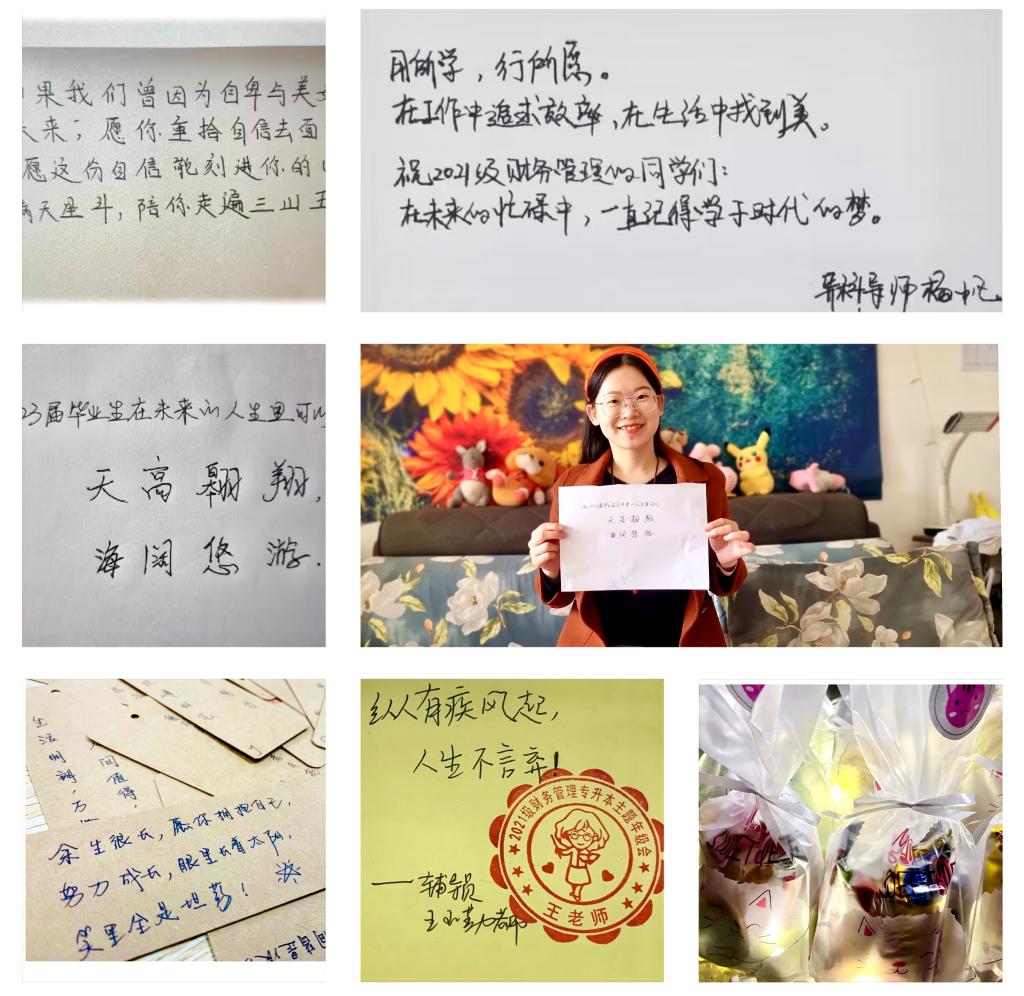 果我们曾因为自卑与美
未来；愿你重拾自信去面
愿这份自信能刻进你的
满天星斗，陪你走遍三山五
用所学，行所愿。
在工作中追求效率，在生活中找到美。
祝2021级财务管理的同学们：
在未来的忙碌中，一直记得学于时代的梦。
导师杨
23届毕业生在未来的人生里可以
天高翱翔，
海阔悠游.
天高翱翔
海阔悠游
生活明朗，万
人间值得
余生很长，愿你拥抱自己，
努力成长，眼里长着太阳，
笑里全是坦荡！
纵有疾风起，
人生不言弃！
2021级财务管理专升本主题年级会
王老师
一辅导员